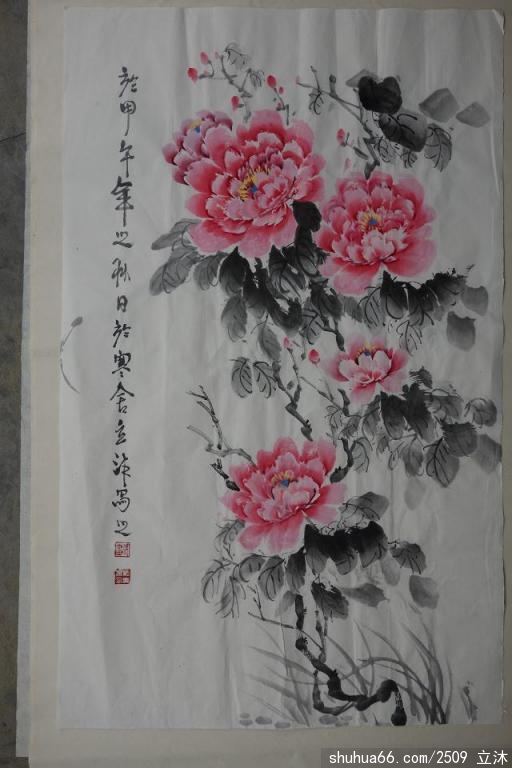 於甲午年之秋日於寒舍立沐写之
shuhua66.com/2509 立沐